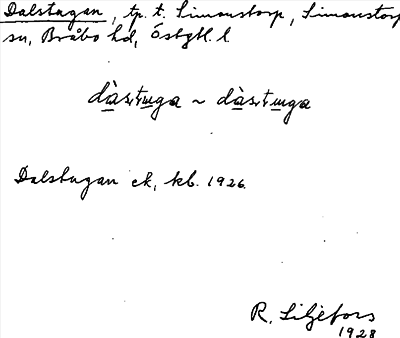 Dalstugan, tp. t. Simonstorp, Simonstorp
sn, Bråbo hd, Östgtl. l.
dàstuga ~ dàstuga
Dalstugan ek, kb. 1926.
R. Liljefors
1928